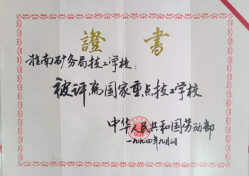 證書
淮南矿务局技工学校:
被评为国家重点技工学校
中华人民共和国劳动部
一九九四年九月